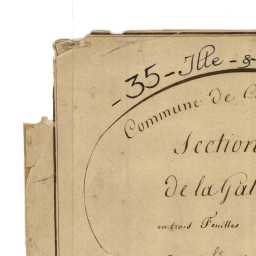 - 35 - Ille - &
Commune de
Section
de la Gât
en trois Feuilles